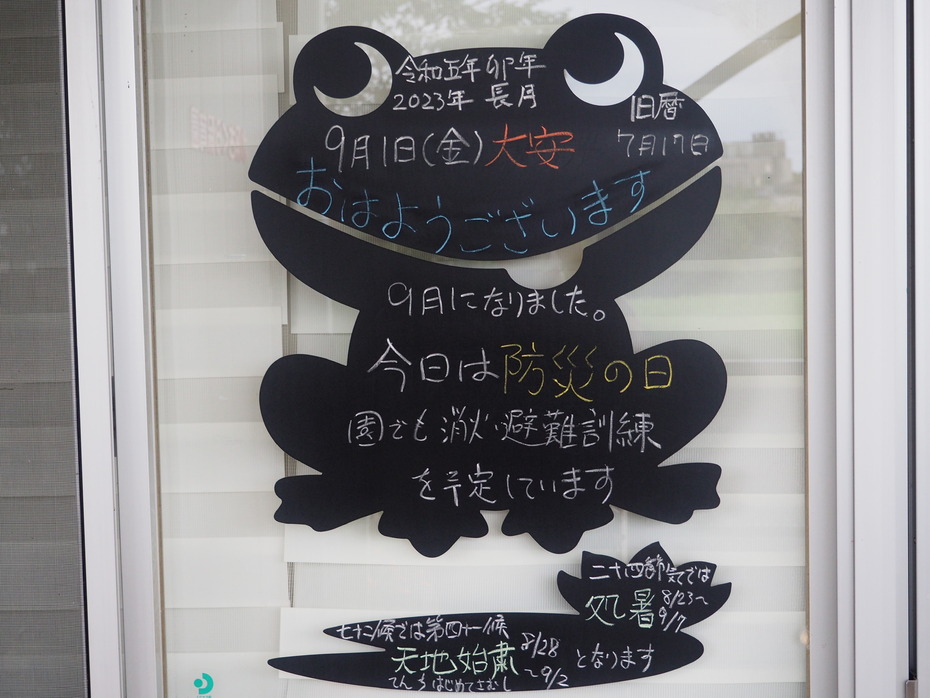 令和五年卯年
2023年 長月
旧暦
7月17日
9月1日(金)大安
おはようございます
9月になりました。
今日は防災の日
園でも消火・避難訓練
を予定しています
二十四節気では
処暑 8/23〜
9/7
七十二候では第四十一候
天地始粛 8/28
〜9/2
てんちはじめてさむし
となります